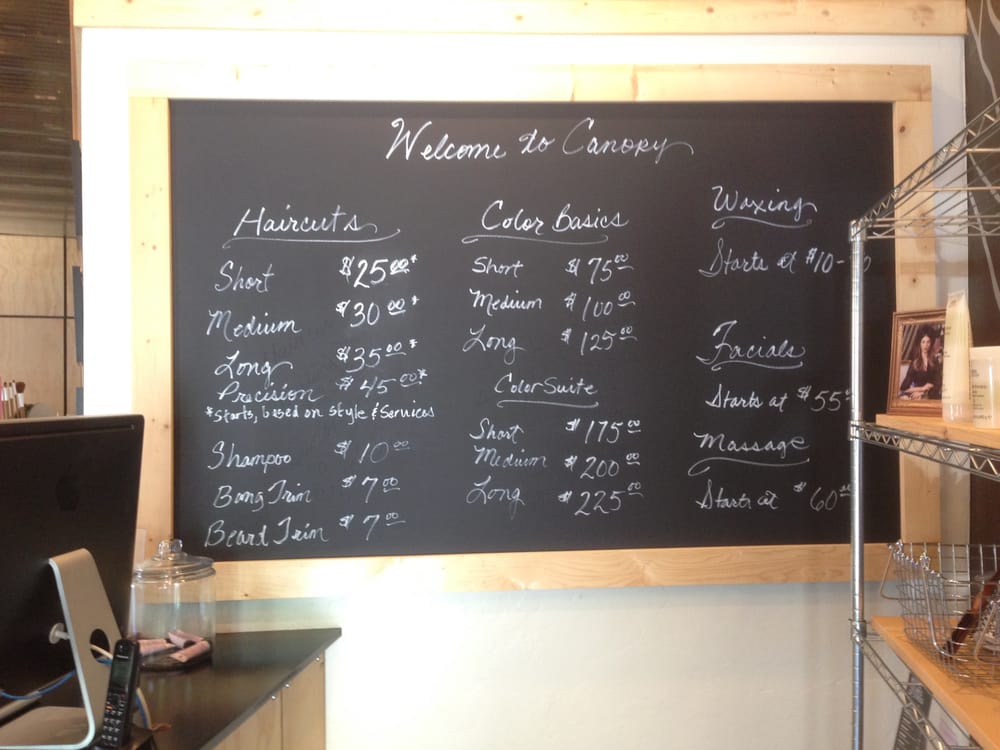 Welcome to Canopy
Haircuts
Short $25.00*
Medium $30.00*
Long $35.00*
Precision $45.00*
*Starts, based on style & Services
Shampoo $10.00
Bang Trim $7.00
Beard Trim $7.00
Color Basics
Short $75.00
Medium $100.00
Long $125.00
Color Suite
Short $175.00
Medium $200.00
Long $225.00
Waxing
Starts at $10-
Facials
Starts at $55
Massage
Starts at $60.00